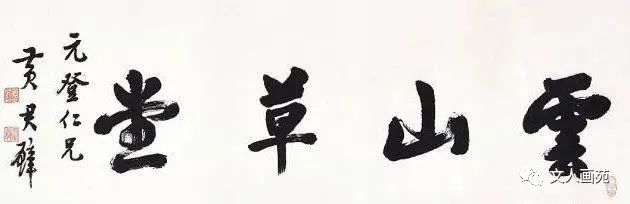 雲山草堂
元登仁兄
黄君璧
文人画苑